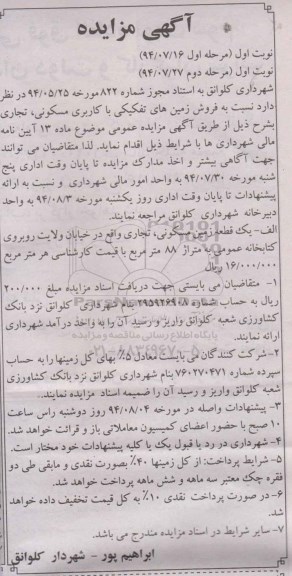 آگهی مزایده
نوبت اول (مرحله اول ۹۴/۰۷/۱۶)
نوبت اول (مرحله دوم ۹۴/۰۷/۲۷)
شهرداری کلوانق به استناد مجوز شماره ۸۲۲ مورخه ۹۴/۰۵/۲۵ در نظر
دارد نسبت به فروش زمین های تفکیکی با کاربری مسکونی، تجاری
بشرح ذیل از طریق آگهی مزایده عمومی موضوع ماده ۱۳ آیین نامه
مالی شهرداری ها با شرایط ذیل اقدام نماید. لذا متقاضیان می توانند
جهت آگاهی بیشتر و اخذ مدارک مزایده تا پایان وقت اداری پنج
شنبه مورخه ۹۴/۰۷/۳۰ به واحد امور مالی شهرداری و نسبت به ارائه
پیشنهادات تا پایان وقت اداری روز یکشنبه مورخه ۹۴/۰۸/۳ به واحد
دبیرخانه شهرداری کلوانق مراجعه نمایند.
الف- یک قطعه زمین مسکونی، تجاری واقع در خیابان ولایت روبروی
کتابخانه عمومی به متراژ ۸۸ متر مربع با قیمت کارشناسی هر متر مربع
۱۶/۰۰۰/۰۰۰ ریال
۱- متقاضیان می بایستی جهت دریافت اسناد مزایده مبلغ ۲۰۰/۰۰۰
ریال به حساب شماره بنام شهرداری کلوانق نزد بانک
کشاورزی شعبه کلوانق واریز و رسید آن را به واحد درآمد شهرداری
ارائه نمایند.
۲-شرکت کنندگان می بایست معادل ۵٪ بهای کل زمینها را به حساب
سپرده شماره ۷۶۰۲۷۰۴۷۱ بنام شهرداری کلوانق نزد بانک کشاورزی
شعبه کلوانق واریز و رسید آن را ضمیمه اسناد مزایده نمایند.
۳- پیشنهادات واصله در مورخه ۹۴/۰۸/۰۴ روز دوشنبه راس ساعت
۱۰ صبح با حضور اعضای کمیسیون معاملاتی باز و قرائت خواهد شد.
۴- شهرداری در رد یا قبول یک یا کلیه پیشنهادات خود مختار است.
۵- شرایط پرداخت: از کل زمینها ۴۰٪ بصورت نقدی و مابقی طی دو
فقره چک معتبر سه ماهه و شش ماهه پرداخت خواهد شد.
۶- در صورت پرداخت نقدی ۱۰٪ به کل قیمت تخفیف داده خواهد
شد.
۷- سایر شرایط در اسناد مزایده مندرج می باشد.
ابراهیم پور - شهردار کلوانق